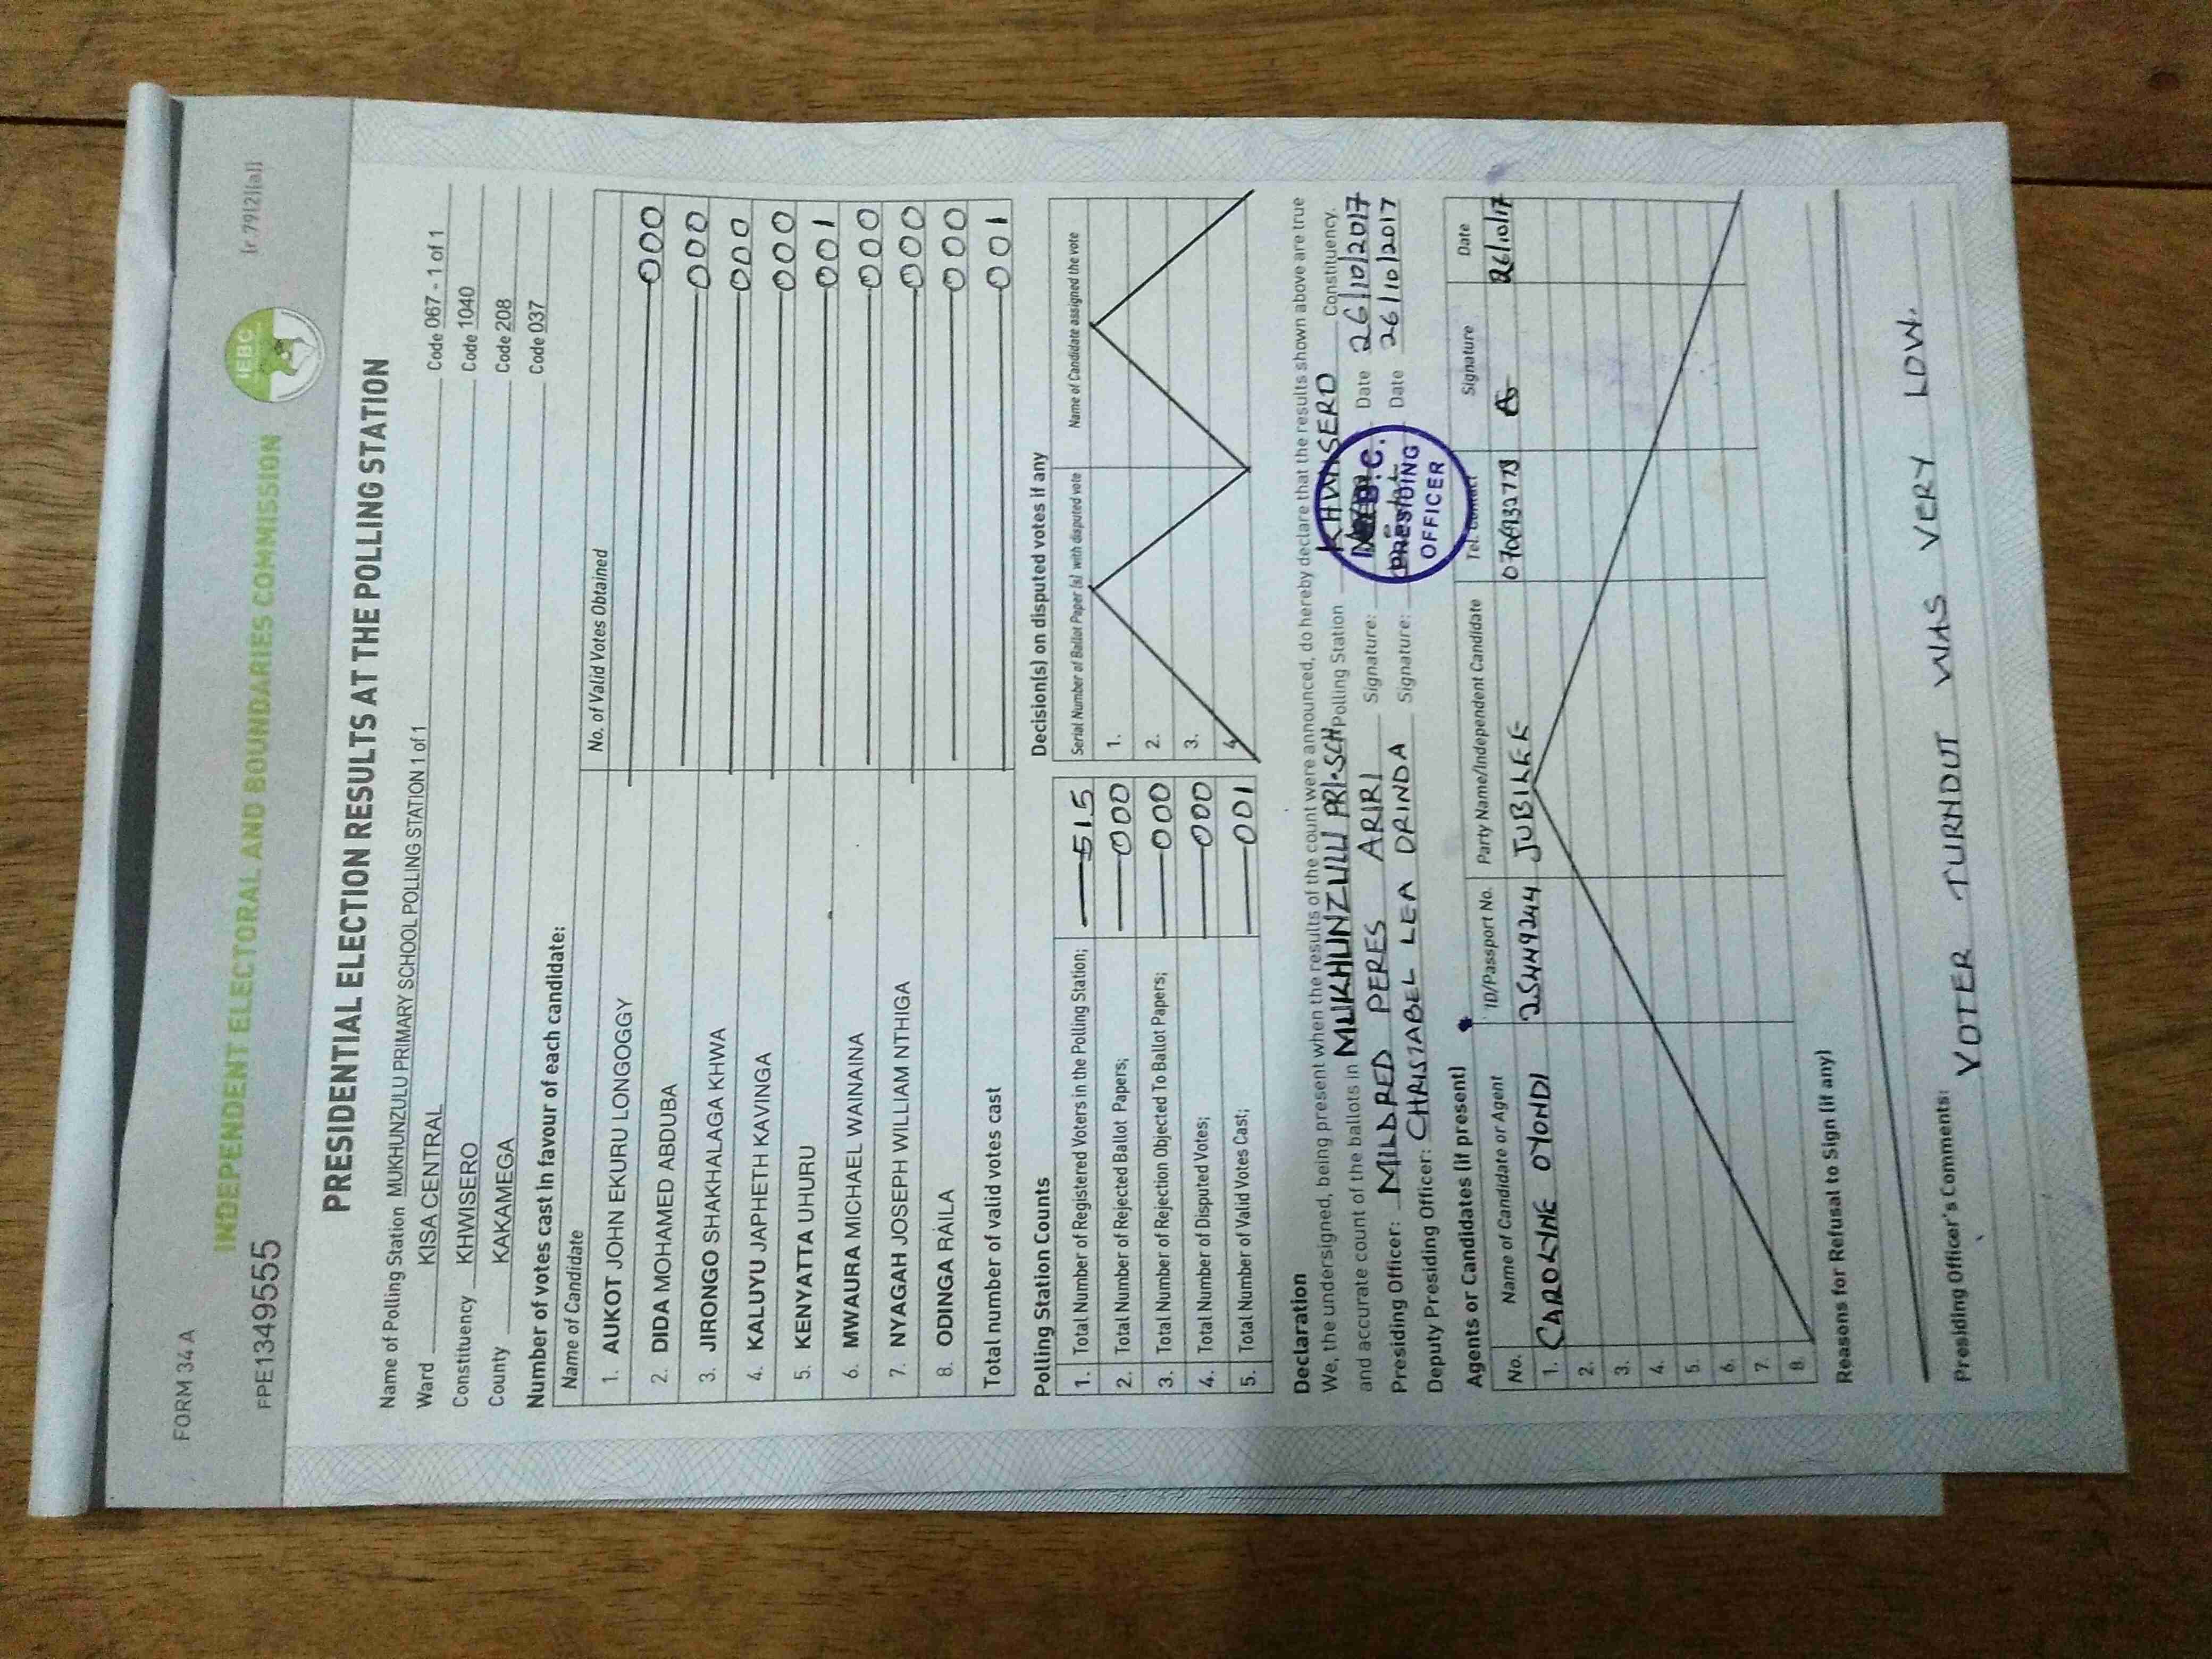 FORM 34 A
INDEPENDENT ELECTORAL AND BOUNDARIES COMMISSION
IEBC
[r.79(2)(a)]
FPE1349555
PRESIDENTIAL ELECTION RESULTS AT THE POLLING STATION
Name of Polling Station MUKHUNZULU PRIMARY SCHOOL POLLING STATION 1 of 1 Code 067 - 1 of 1
Ward KISA CENTRAL Code 1040
Constituency KHWISERO Code 208
County KAKAMEGA Code 037
Number of votes cast in favour of each candidate:
Name of Candidate No. of Valid Votes Obtained
1. AUKOT JOHN EKURU LONGOGGY 000
2. DIDA MOHAMED ABDUBA 000
3. JIRONGO SHAKHALAGA KHWA 000
4. KALUYU JAPHETH KAVINGA 000
5. KENYATTA UHURU 001
6. MWAURA MICHAEL WAINAINA 000
7. NYAGAH JOSEPH WILLIAM NTHIGA 000
8. ODINGA RAILA 000
Total number of valid votes cast 001
Polling Station Counts
1. Total Number of Registered Voters in the Polling Station; 515
2. Total Number of Rejected Ballot Papers; 000
3. Total Number of Rejection Objected To Ballot Papers; 000
4. Total Number of Disputed Votes; 000
5. Total Number of Valid Votes Cast; 001
Decision(s) on disputed votes if any
Serial Number of Ballot Paper (s) with disputed vote Name of Candidate assigned the vote
1.
2.
3.
4.
Declaration
We, the undersigned, being present when the results of the count were announced, do hereby declare that the results shown above are true
and accurate count of the ballots in MUKHUNZULU PRI.SCH Polling Station KHWISERO Constituency.
Presiding Officer: MILDRED PERES ARIRI Signature: Date 26/10/2017
Deputy Presiding Officer: CHRISTABEL LEA ORINDA Signature: Date 26/10/2017
PRESIDING
OFFICER
Agents or Candidates (if present)
No. Name of Candidate or Agent ID/Passport No. Party Name/Independent Candidate Tel. Contact Signature Date
1. CAROLYNE OYONDI 25449244 JUBILEE 26/10/17
2.
3.
4.
5.
6.
7.
8.
Reasons for Refusal to Sign (if any)
Presiding Officer's Comments:
VOTER TURNOUT WAS VERY LOW.